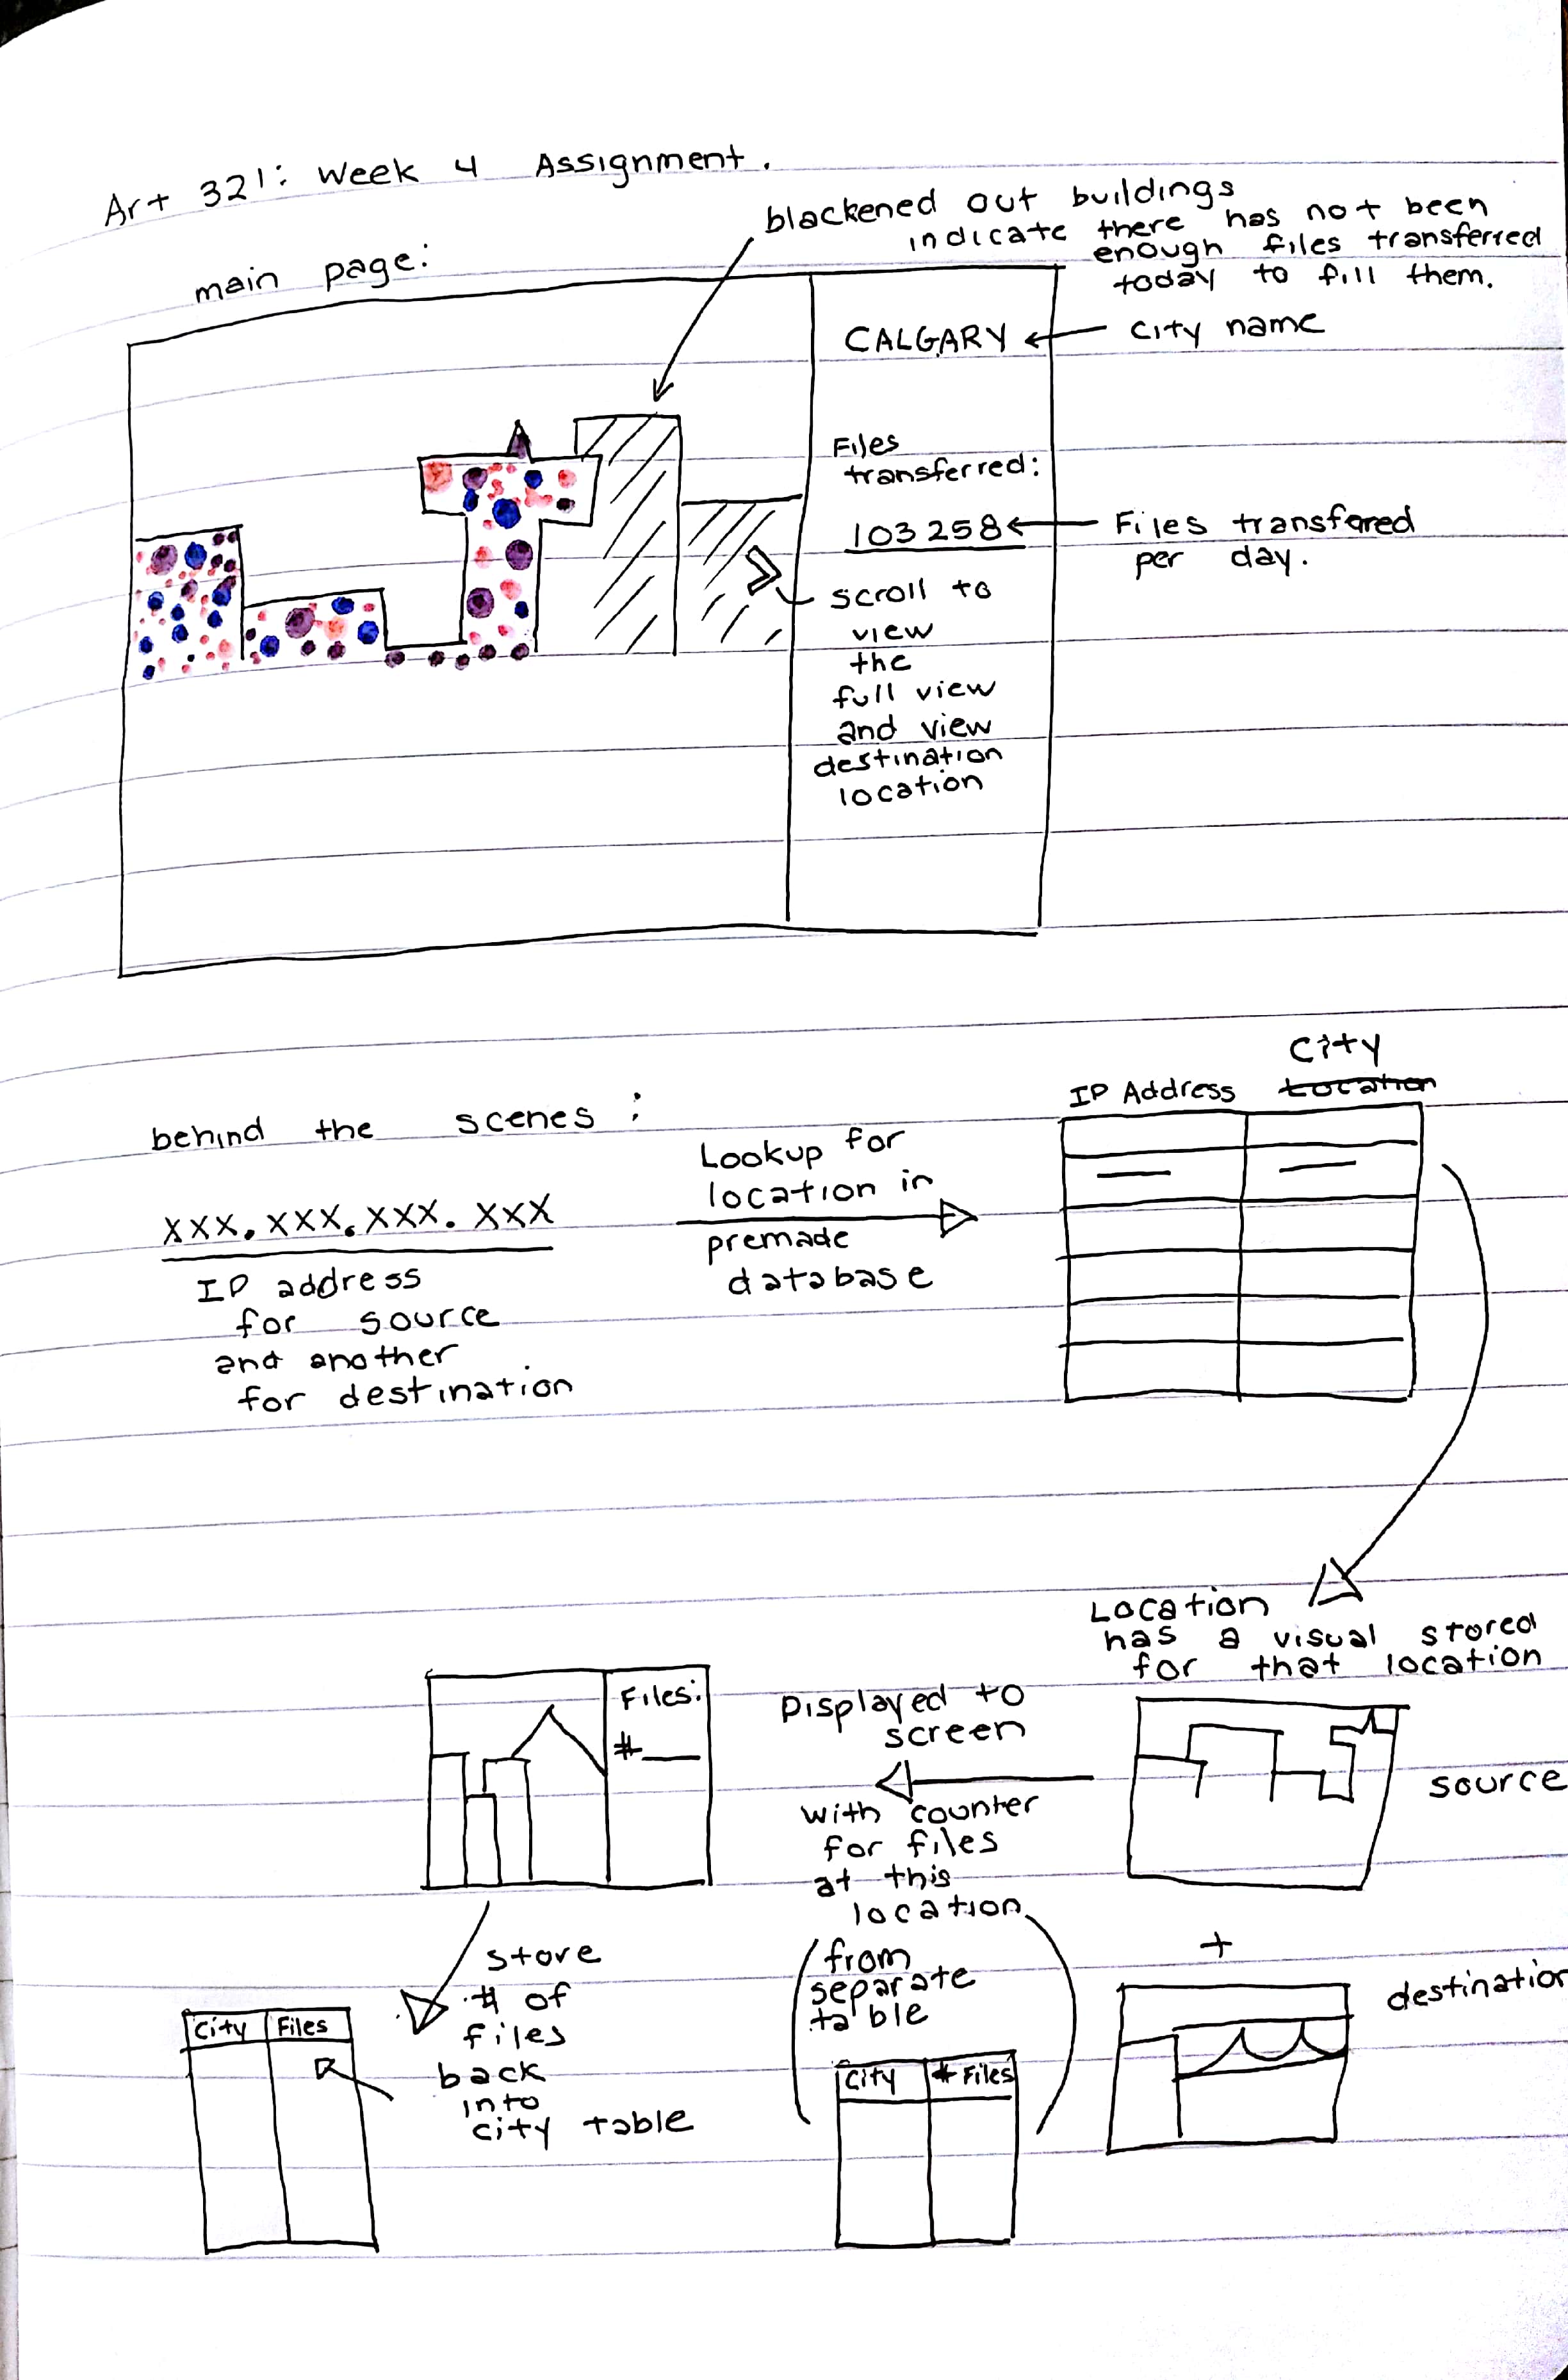 Art 321: Week 4 Assignment.
main page:
blackened out buildings
indicate there has not been
enough files transferred
today to fill them.
CALGARY
City name
Files
transferred:
103 258
Files transfered
per day.
scroll to
view
the
full view
and view
destination
location
behind the scenes:
xxx.xxx.xxx.xxx
IP address
for source
and another
for destination
Lookup for
location in
premade
database
City
IP Address Location
Location
has a visual stored
for that location
source
+
destination
Displayed to
screen
with counter
for files
at this
location
from
separate
table
City # Files
Files:
#
store
# of
files
back
into
city table
City Files